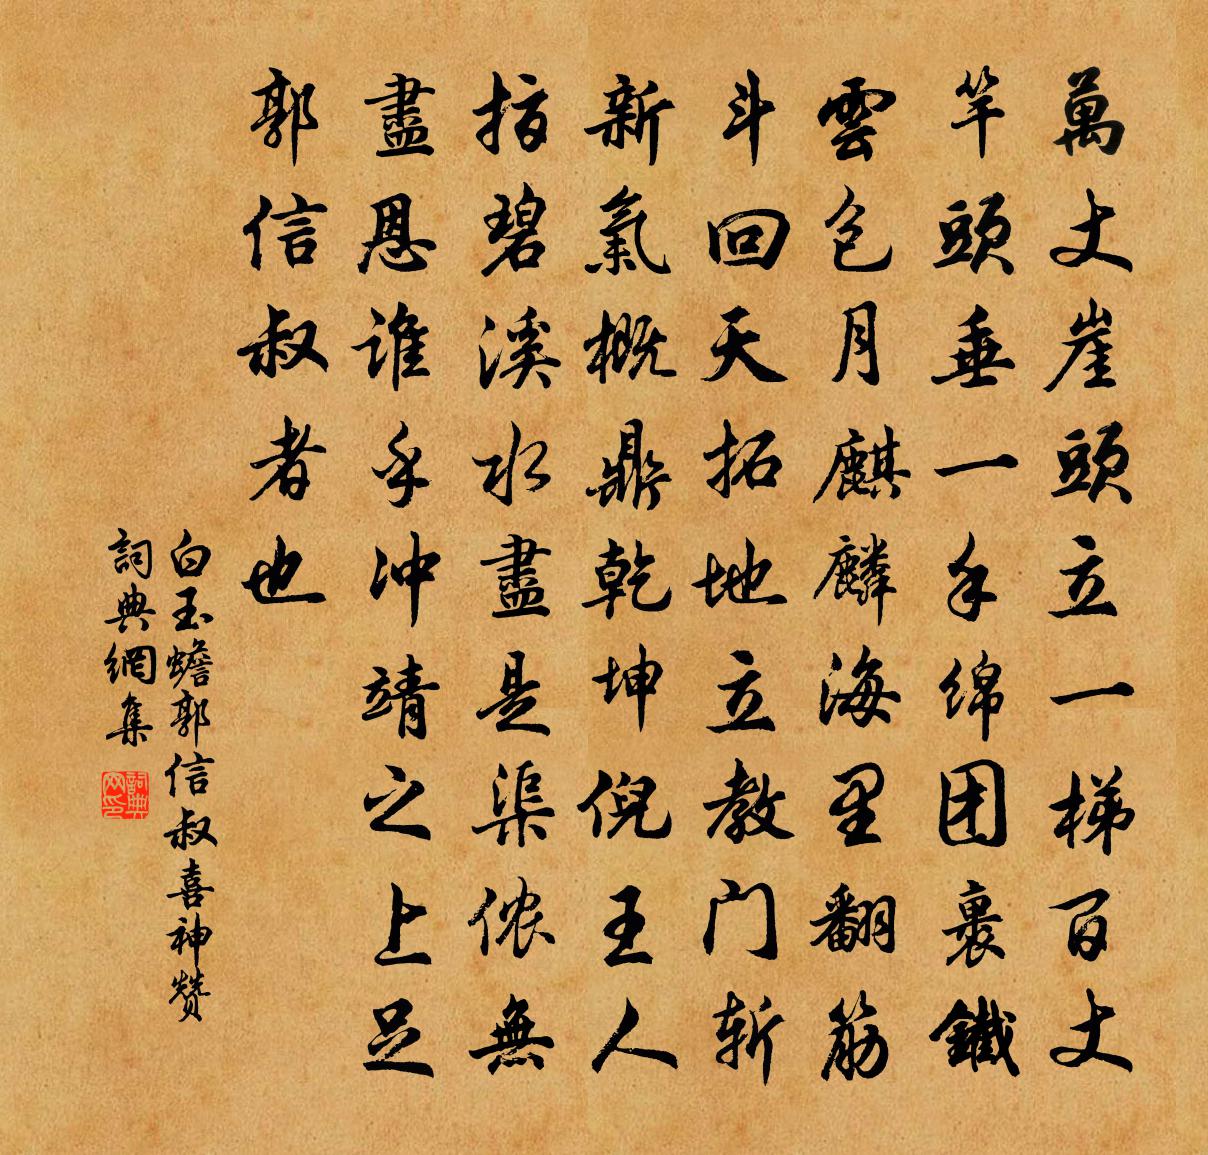 萬丈崖頭立一梯百丈
竿頭垂一手绵团裹鐵
雲包月麒麟海里翻筋
斗回天拓地立教门斩
新氣概鼎乾坤倪王人
指碧溪水盡是渠侬無
盡恩誰乎冲靖之上足
郭信叔者也
白玉蟾郭信叔喜神赞
詞典網集
詞典网印